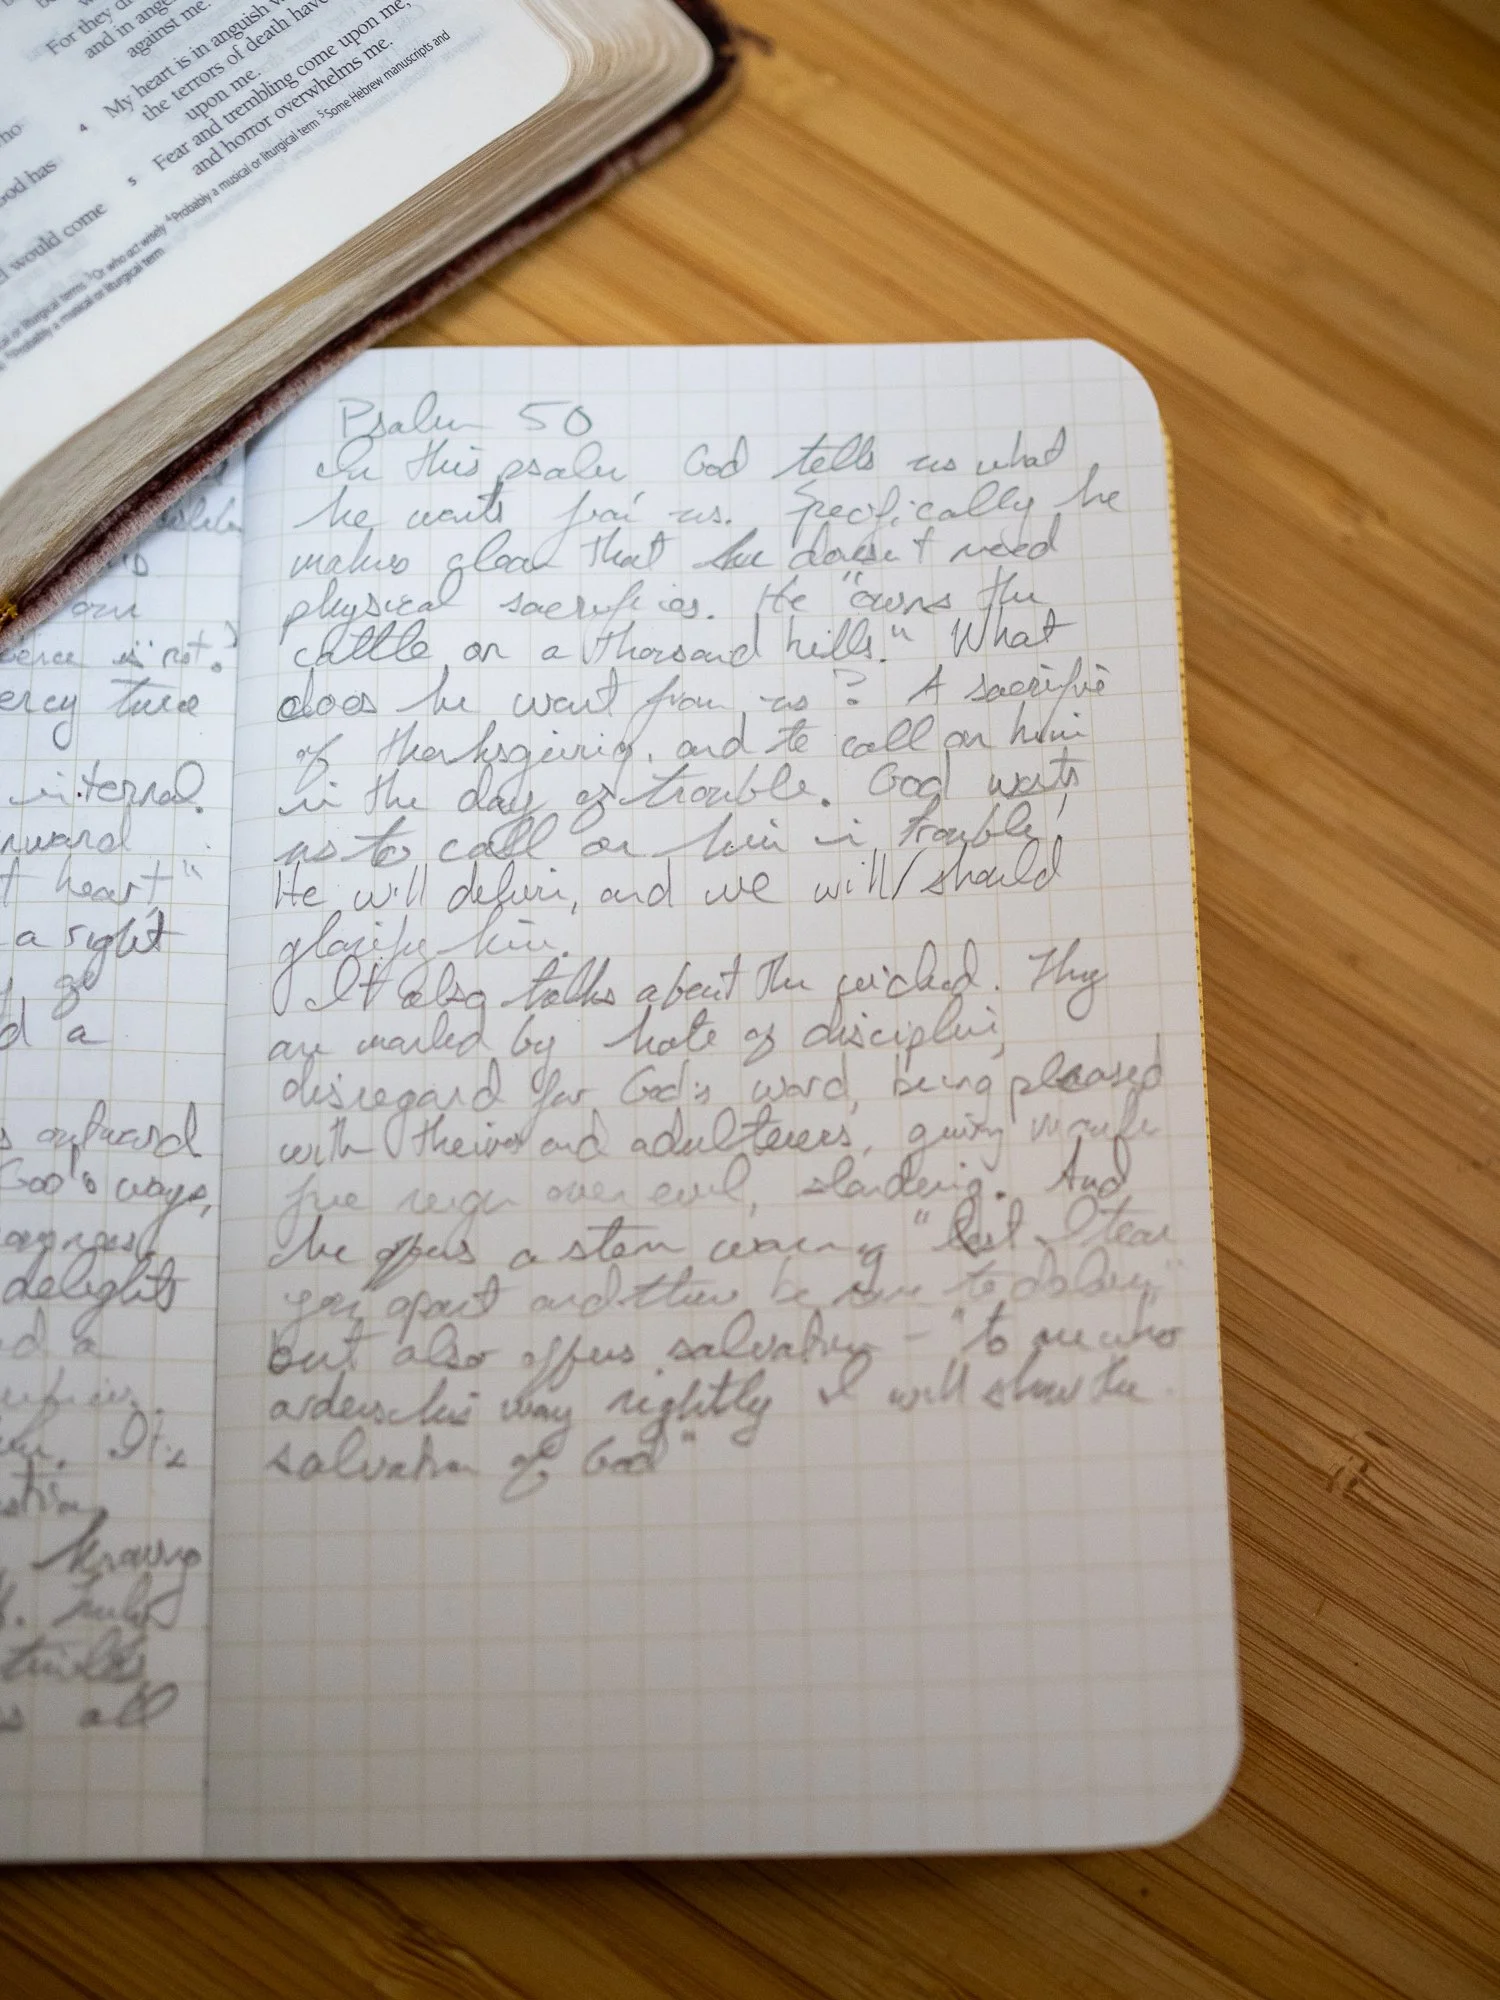 For they
and in anger
against me.
4 My heart is in anguish
the terrors of death have
upon me.
5 Fear and trembling come upon me,
and horror overwhelms me.
God has
would come
wisely 4Probably a musical or liturgical term 5Some Hebrew manuscripts and
or liturgical terms 3Or who act
Probably a musical or liturgical term
our
is not.
mercy
internal.
heart"
a right
d a
outward
God's ways,
delight
d a
It's
knowing
all
Psalm 50
In this psalm God tells us what
he wants from us. Specifically he
makes clear that he doesn't need
physical sacrifices. He "owns the
cattle on a thousand hills." What
does he want from us? A sacrifice
of thanksgiving, and to call on him
in the day of trouble. God wants
us to call on him in trouble,
He will deliver, and we will/should
glorify him.
It also talks about the wicked. They
are marked by hate of discipline,
disregard for God's word, being pleased
with thieves and adulterers, giving mouth
free reign over evil, slandering. And
he offers a stern warning "lest I tear
you apart and there be none to deliver"
but also offers salvation - "to one who
orders his way rightly I will show the
salvation of God"